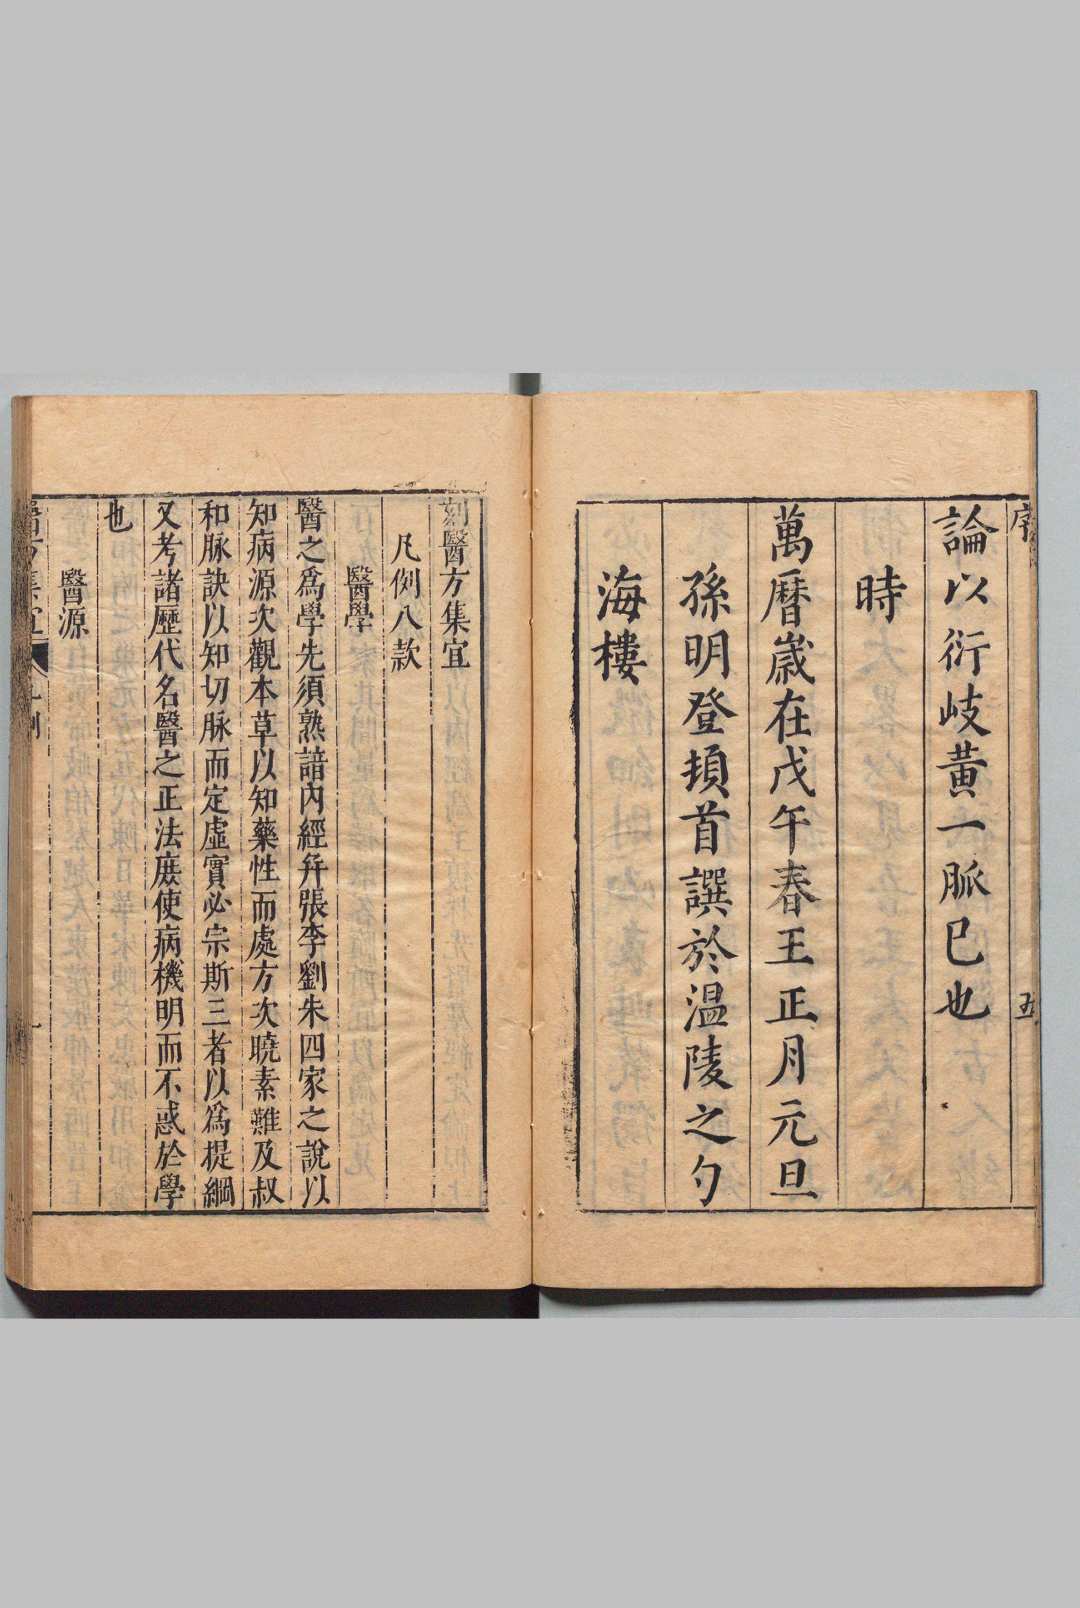 序
五
論以衍岐黄一脈巳也
時
萬曆歲在戊午春王正月元旦
孫明登頓首譔於温陵之勺
海樓
刻醫方集宜
凡例八款
醫學
醫之爲學先須熟諳内經幷張李劉朱四家之說以
知病源次觀本草以知藥性而處方次曉素難及叔
和脉訣以知切脉而定虛實必宗斯三者以爲提綱
又考諸歷代名醫之正法庻使病機明而不惑於學
也
醫源